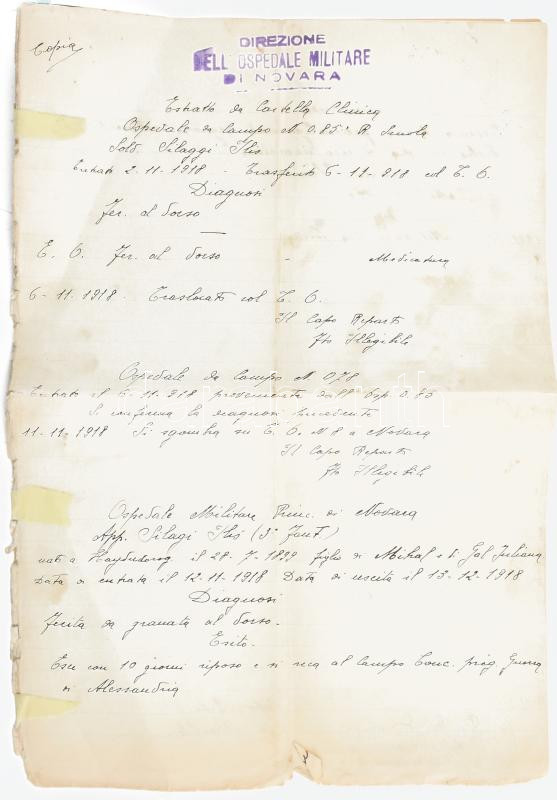 Copia
DIREZIONE
DELL'OSPEDALE MILITARE
DI NOVARA
Estratto da Cartella Clinica
Ospedale da Campo N 0.85 R
Solt. Silaggi Ilió
Entrato 2-11-1918 - Trasferito 6-11-918 col T. O.
Diagnosi
Fer. al dorso
E. O. Fer. al dorso - Medicatura
6-11-1918. Traslocato col T. O.
Il Capo Reparto
Fto Illegibile
Ospedale da Campo N 078
Entrato il 6-11-918 proveniente dall' Osp 0.85
Si conferma la diagnosi
11-11-1918 Si sgombra su T. O. N 8 a Novara
Il Capo Reparto
Fto Illegibile
Ospedale Militare Princ. di Novara
App. Silagi Ilió (3° Fant.)
nato a Haydudorog il 28-7-1899 figlio di Mihal e di Gal Juliana
Data di entrata il 12-11-1918 Data di uscita il 13-12-1918
Diagnosi
Ferita da granata al dorso.
Esito.
Esce con 10 giorni riposo e si reca al campo Conc. prig. Guerra
di Alessandria